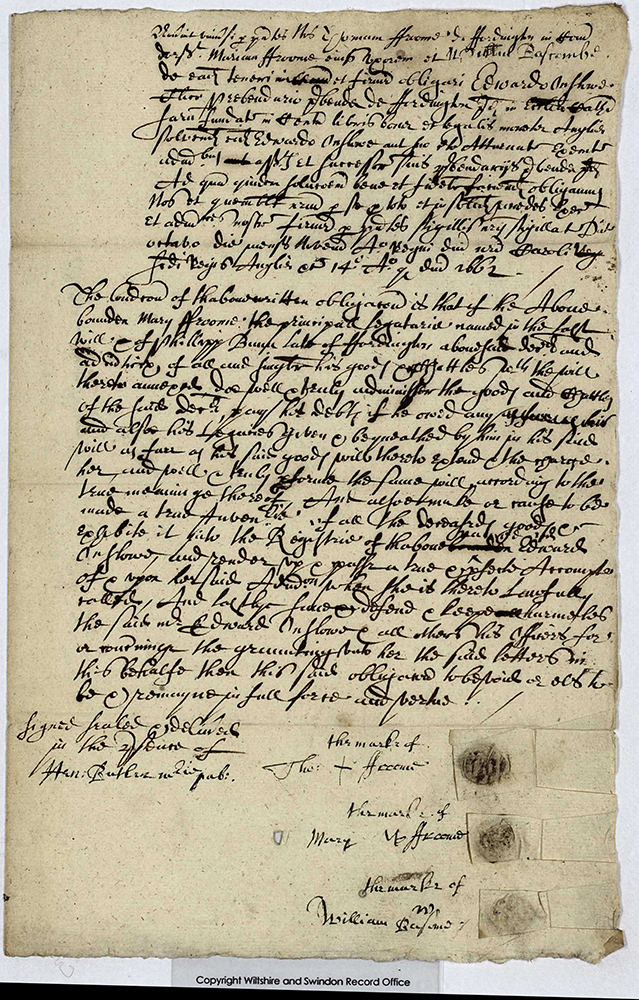 Noverint universi p pntes Nos Thomam Froome de Fordington in Com
Dorss. Mariam Froome eius uxorem et Willm Bascombe
de ead teneri et firmr obligari Edwardo Onslowe
Clico Prebendario Prbende de Fordington in
Sarum fundat in libris bone et legalis monete Anglie
solvend eid Edwardo Onslowe aut suo cto Attornat Execut
admr vel et Successor suis prbendarijs prbende
Ad qua quidm soluconem bene et fidelr faciend obligamus
Nos et quemlibt nrum p se p toto et in solid heredes Exec
et admres nostr firmr p pntes Sigillis nris sigillat Dat
octavo die mensis Ao Regni dni nri Caroli
Sedi Regis Anglie &c 14o Ao q dni 1662
The Condicon of thabovewritten obligacon is that if the Above
bounden Mary Froome the principall legatarie named in the last
will &c of Phillipp late of Fordington abovesaid decd and
admistrix of all and singler his goods & chattles with the will
thereto annexed doe well & truly administer the goods and Chattles
of the said decd pay his debts if he owed any
and alsoe his Legacies given & bequeathed by him in his said
will as farr as his said goods will thereto extend & the charge
her and well & truly pforme the same will according to the
true meaninge thereof And alsoe make or cause to be
made a true Invenrie of all the deceaseds goods &c
Exhibite it into the Registrie of thabove Edward
Onslowe, and render up & passe a true & pfecte Accompte
of & upon her said Admcon when she is thereto Lawfully
called, And lastlye save & defend & keepe harmeles
the said mr Edward Onslowe & all others his Officers for
or concerninge the grauntinge unto her the said letters in
this behalfe then this said obligacon to be void or els to
be & remayne in full force and vertue
Signed sealed & delivered
in the psence of
Hen: Butler no:rie pub:
the marke of
Tho: + Froome
the marke of
Mary Froome
the marke of
William W Bascome
Copyright Wiltshire and Swindon Record Office